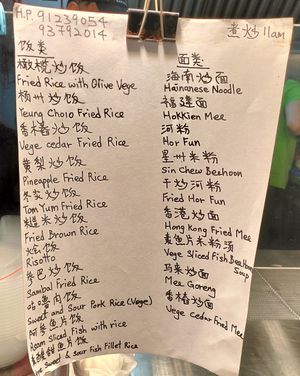 H.P. 91239054
93792014
煮炒 11am
饭类
橄榄炒饭
Fried Rice with Olive Vege
杨州炒饭
Yeung Chow Fried Rice
香椿炒饭
Vege cedar Fried Rice
黄梨炒饭
Pineapple Fried Rice
冬炎炒饭
Tom Yum Fried Rice
糙米炒饭
Fried Brown Rice
烩饭
Risotto
叁巴炒饭
Sambal Fried Rice
咕噜肉饭
Sweet and Sour Pork Rice (Vege)
阿参鱼片饭
Asam Sliced Fish with rice
酸甜鱼片饭
Sweet & Sour Fish Fillet Rice
面类
海南炒面
Hainanese Noodle
福建面
Hokkien Mee
河粉
Hor Fun
星州米粉
Sin Chew Beehoon
干炒河粉
Fried Hor Fun
香港炒面
Hong Kong Fried Mee
素鱼片米粉汤
Vege Sliced Fish Bee Hoon
Soup
马来炒面
Mee Goreng
香椿炒面
Vege cedar Fried Mee